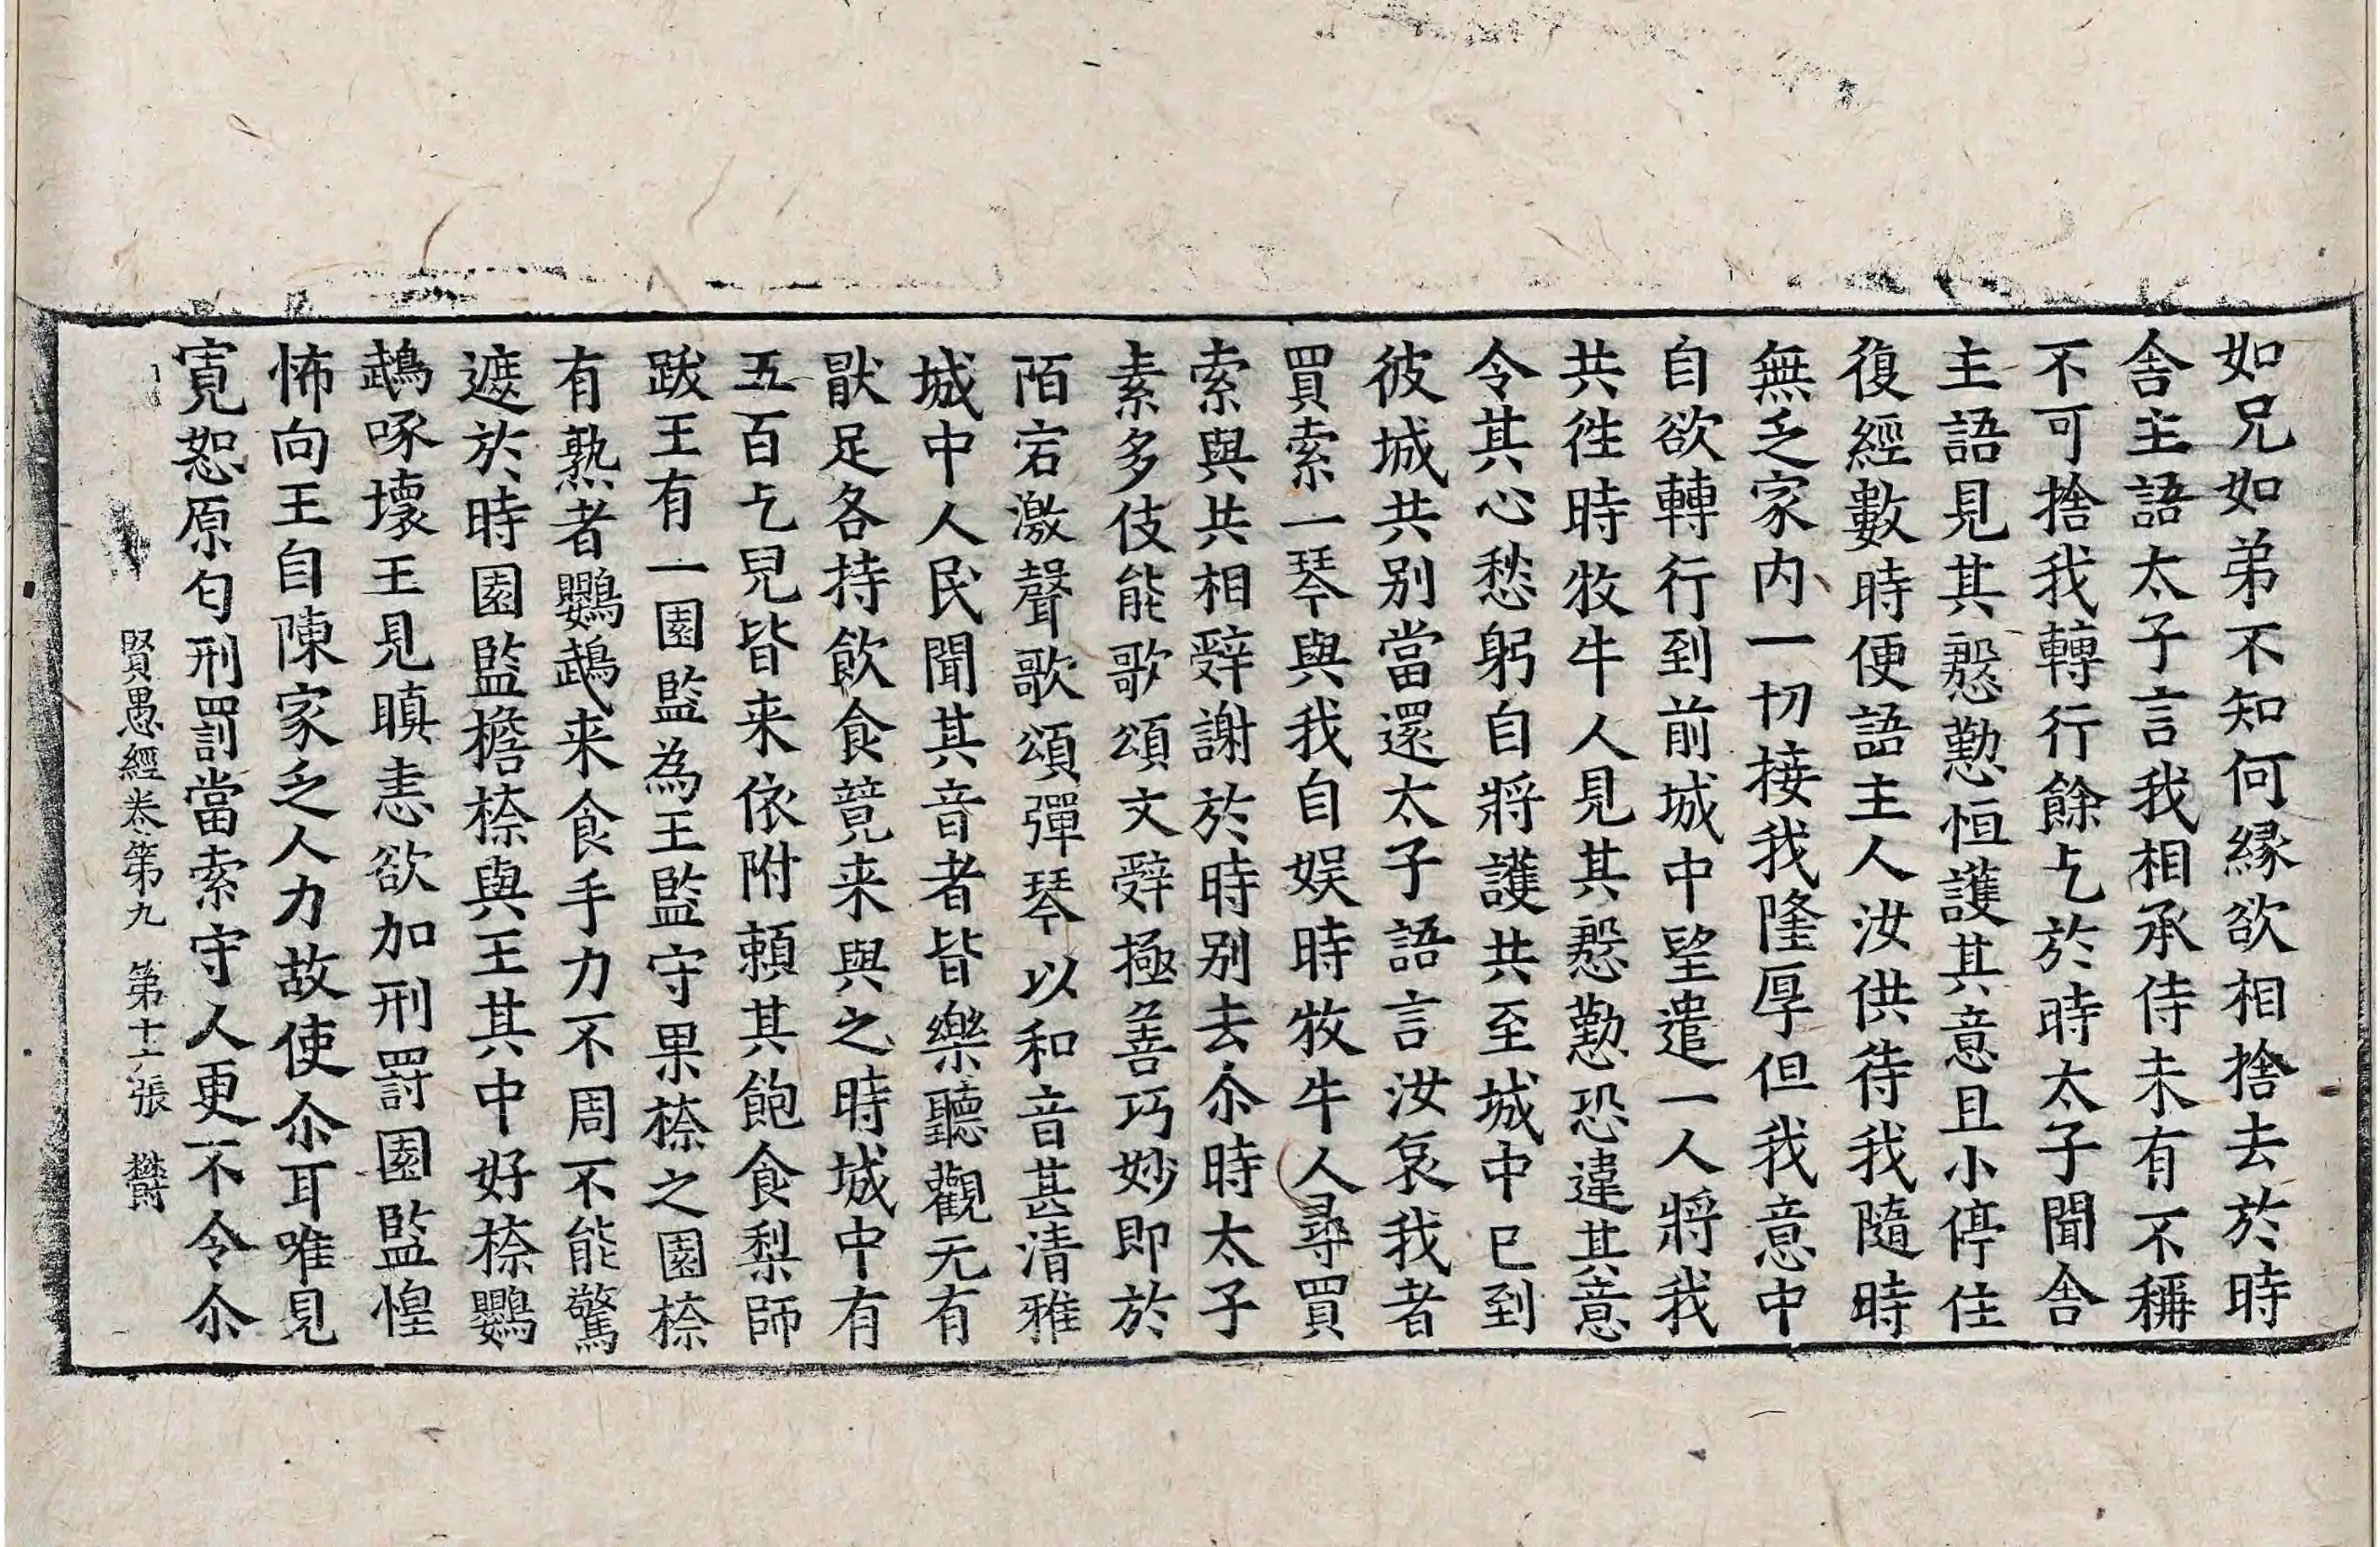 如兄如弟不知何縁欲相捨去於時
舎主語太子言我相承侍未有不稱
不可捨我轉行餘乞於時太子聞舎
主語見其慇懃恒護其意且小停住
復經數時便語主人汝供待我隨時
無乏家内一切接我隆厚但我意中
自欲轉行到前城中望遣一人將我
共徃時牧牛人見其慇懃恐違其意
令其心愁躬自將護共至城中已到
彼城共别當還太子語言汝哀我者
買索一琴與我自娱時牧牛人尋買
索與共相辤謝於時别去尒時太子
素多伎能歌頌文辤極善巧妙即於
陌宕激聲歌頌彈琴以和音甚清雅
城中人民聞其音者皆樂聽觀无有
猒足各持飲食競来與之時城中有
五百乞兒皆来依附頼其飽食梨師
跋王有一園監為王監守果㮈之園㮈
有熟者鸚鵡来食手力不周不能驚
遮於時園監擔㮈與王其中好㮈鸚
鵡啄壞王見瞋恚欲加刑罸園監惶
怖向王自陳家乏人力故使尒耳唯見
寛恕原匄刑罰當索守人更不令尒
賢愚經卷第九　第十六張　欝